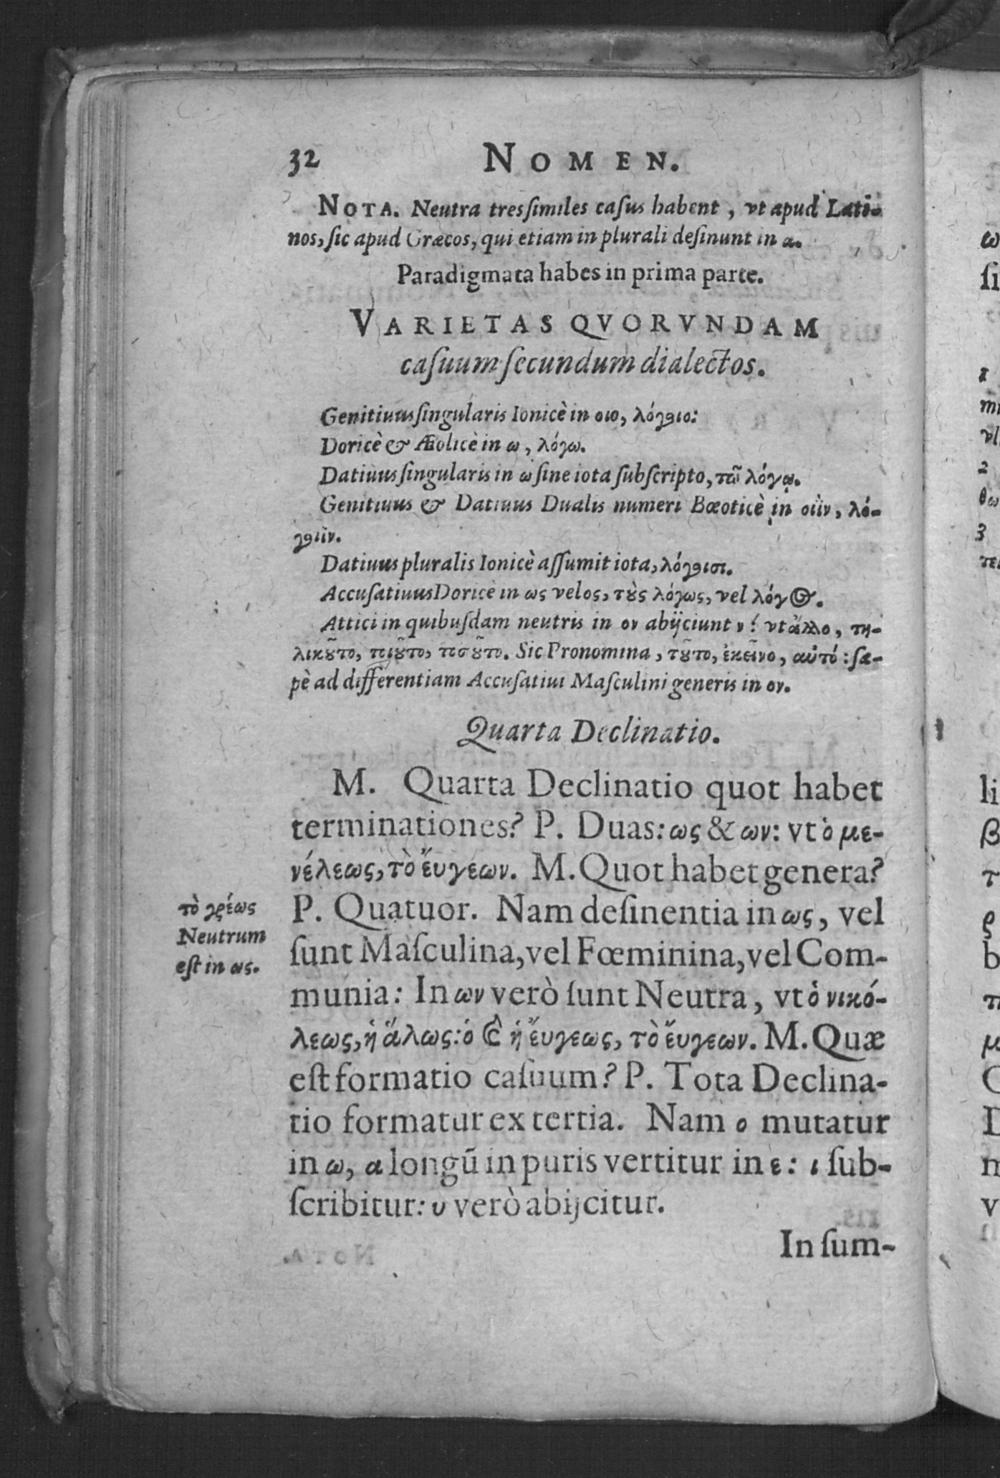 32 NOMEN.
NOTA. Neutra tres ſimiles caſus habent, vt apud Lati-
nos, ſic apud Græcos, qui etiam in plurali deſinunt in α.
Paradigmata habes in prima parte.
VARIETAS QVORVNDAM
caſuum ſecundum dialectos.
Genitiuus ſingularis Ionicè in οιο, λόγοιο:
Doricè & Æolicè in ω, λόγω.
Datiuus ſingularis in ω ſine iota ſubſcripto, τῶ λόγῳ.
Genitiuus & Datiuus Dualis numeri Bœoticè in οιϊν, λό-
γοιϊν.
Datiuus pluralis Ionicè aſſumit iota, λόγοισι.
Accuſatiuus Doricè in ως vel ος, τὸς λόγως, vel λόγος.
Attici in quibuſdam neutris in ον abijciunt ν: vt ἄλλο, τη-
λικοῦτο, τοιοῦτο, τοσοῦτο. Sic Pronomina, τοῦτο, ἐκεῖνο, αὐτό: ſæ-
pè ad differentiam Accuſatiui Maſculini generis in ον.
Quarta Declinatio.
M. Quarta Declinatio quot habet
terminationes? P. Duas: ως & ων: vt ὁ με-
νέλεως, τὸ ἔυγεων. M. Quot habet genera?
P. Quatuor. Nam deſinentia in ως, vel
ſunt Maſculina, vel Fœminina, vel Com-
munia: In ων verò ſunt Neutra, vt ὁ νικό-
λεως, ἡ ἅλως: ὁ & ἡ ἔυγεως, τὸ ἔυγεων. M. Quæ
eſt formatio caſuum? P. Tota Declina-
tio formatur ex tertia. Nam ο mutatur
in ω, α longũ in puris vertitur in ε: ι ſub-
ſcribitur: υ verò abijcitur.
In ſum-
τὸ χρέως
Neutrum
eſt in ως.